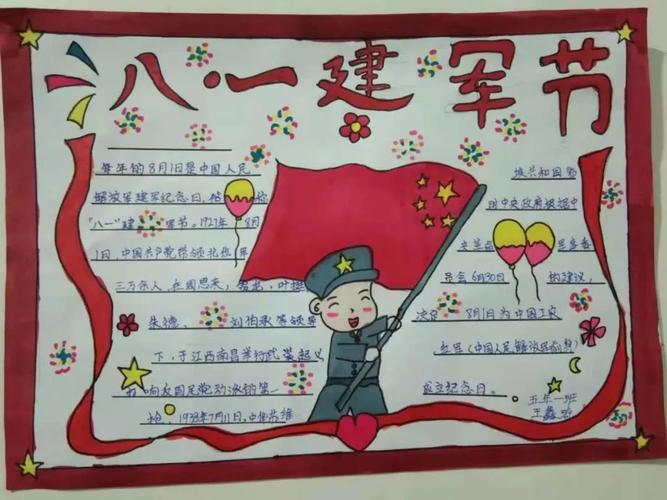 八·一建军节
每年的8月1日是中国人民
解放军建军纪念日，俗称
"八一"建军节。1927年8月
1日，中国共产党带领北伐军
三万余人，在周恩来，贺龙，叶挺
朱德、刘伯承等领导
下，于江西南昌举行武装起义
打响反国民党动派的第一
枪，1933年7月11日，中华苏维
埃共和国临
时中央政府根据中
央 革命委
员会6月30日的建议，
决定8月1日为中国工农
红军（中国人民解放军前身）
成立纪念日。
五年一班
王鑫